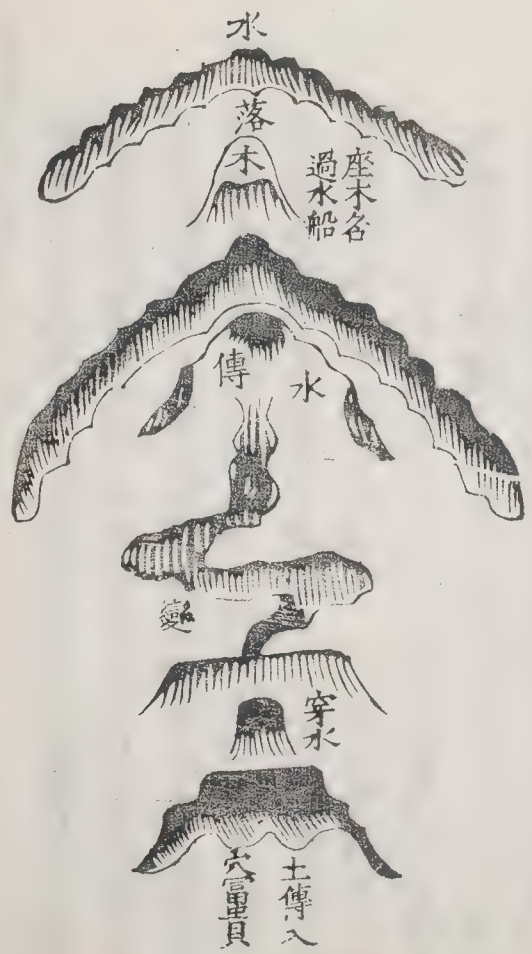 水
落
木
座木名
過水船
傳
水
變
穿水
土傳入
穴富貴